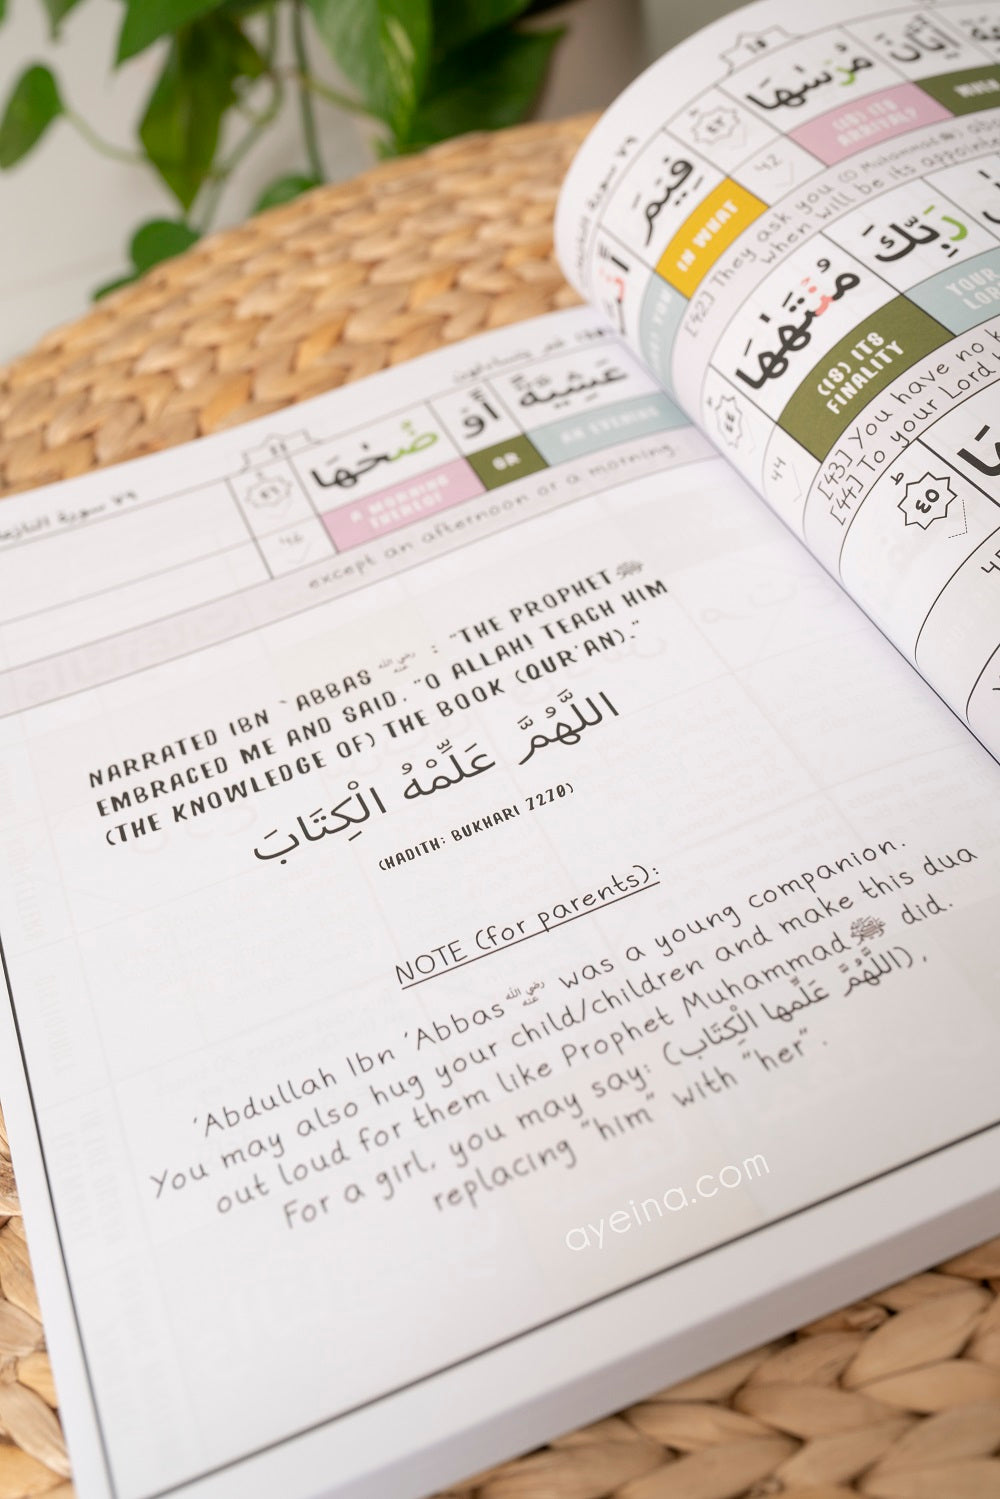 عَشِيَّةً أَوْ ضُحَٰهَا
AN EVENING OR A MORNING THEREOF
٤٦
46
except an afternoon or a morning.
NARRATED IBN `ABBAS رضي الله عنه : "THE PROPHET ﷺ
EMBRACED ME AND SAID, "O ALLAH! TEACH HIM
(THE KNOWLEDGE OF) THE BOOK (QUR'AN)."
اللَّهُمَّ عَلِّمْهُ الْكِتَابَ
(HADITH: BUKHARI 7270)
NOTE (for parents):
'Abdullah Ibn 'Abbas رضي الله عنه was a young companion.
You may also hug your child/children and make this dua
out loud for them like Prophet Muhammad ﷺ did.
For a girl, you may say: (اللَّهُمَّ عَلِّمها الْكِتَاب),
replacing "him" with "her".
ayeina.com
١٥
أَيَّانَ مُرْسَىٰهَا
WHEN (IS) ITS ARRIVAL?
٤٢
42
[42] They ask you (O Muhammad ﷺ)
when will be its
فِيمَ
IN WHAT
رَبِّكَ مُنتَهَىٰهَا
YOUR LORD (IS) ITS FINALITY
٤٤
44
[43] You have no
[44] To your Lord
٤٥